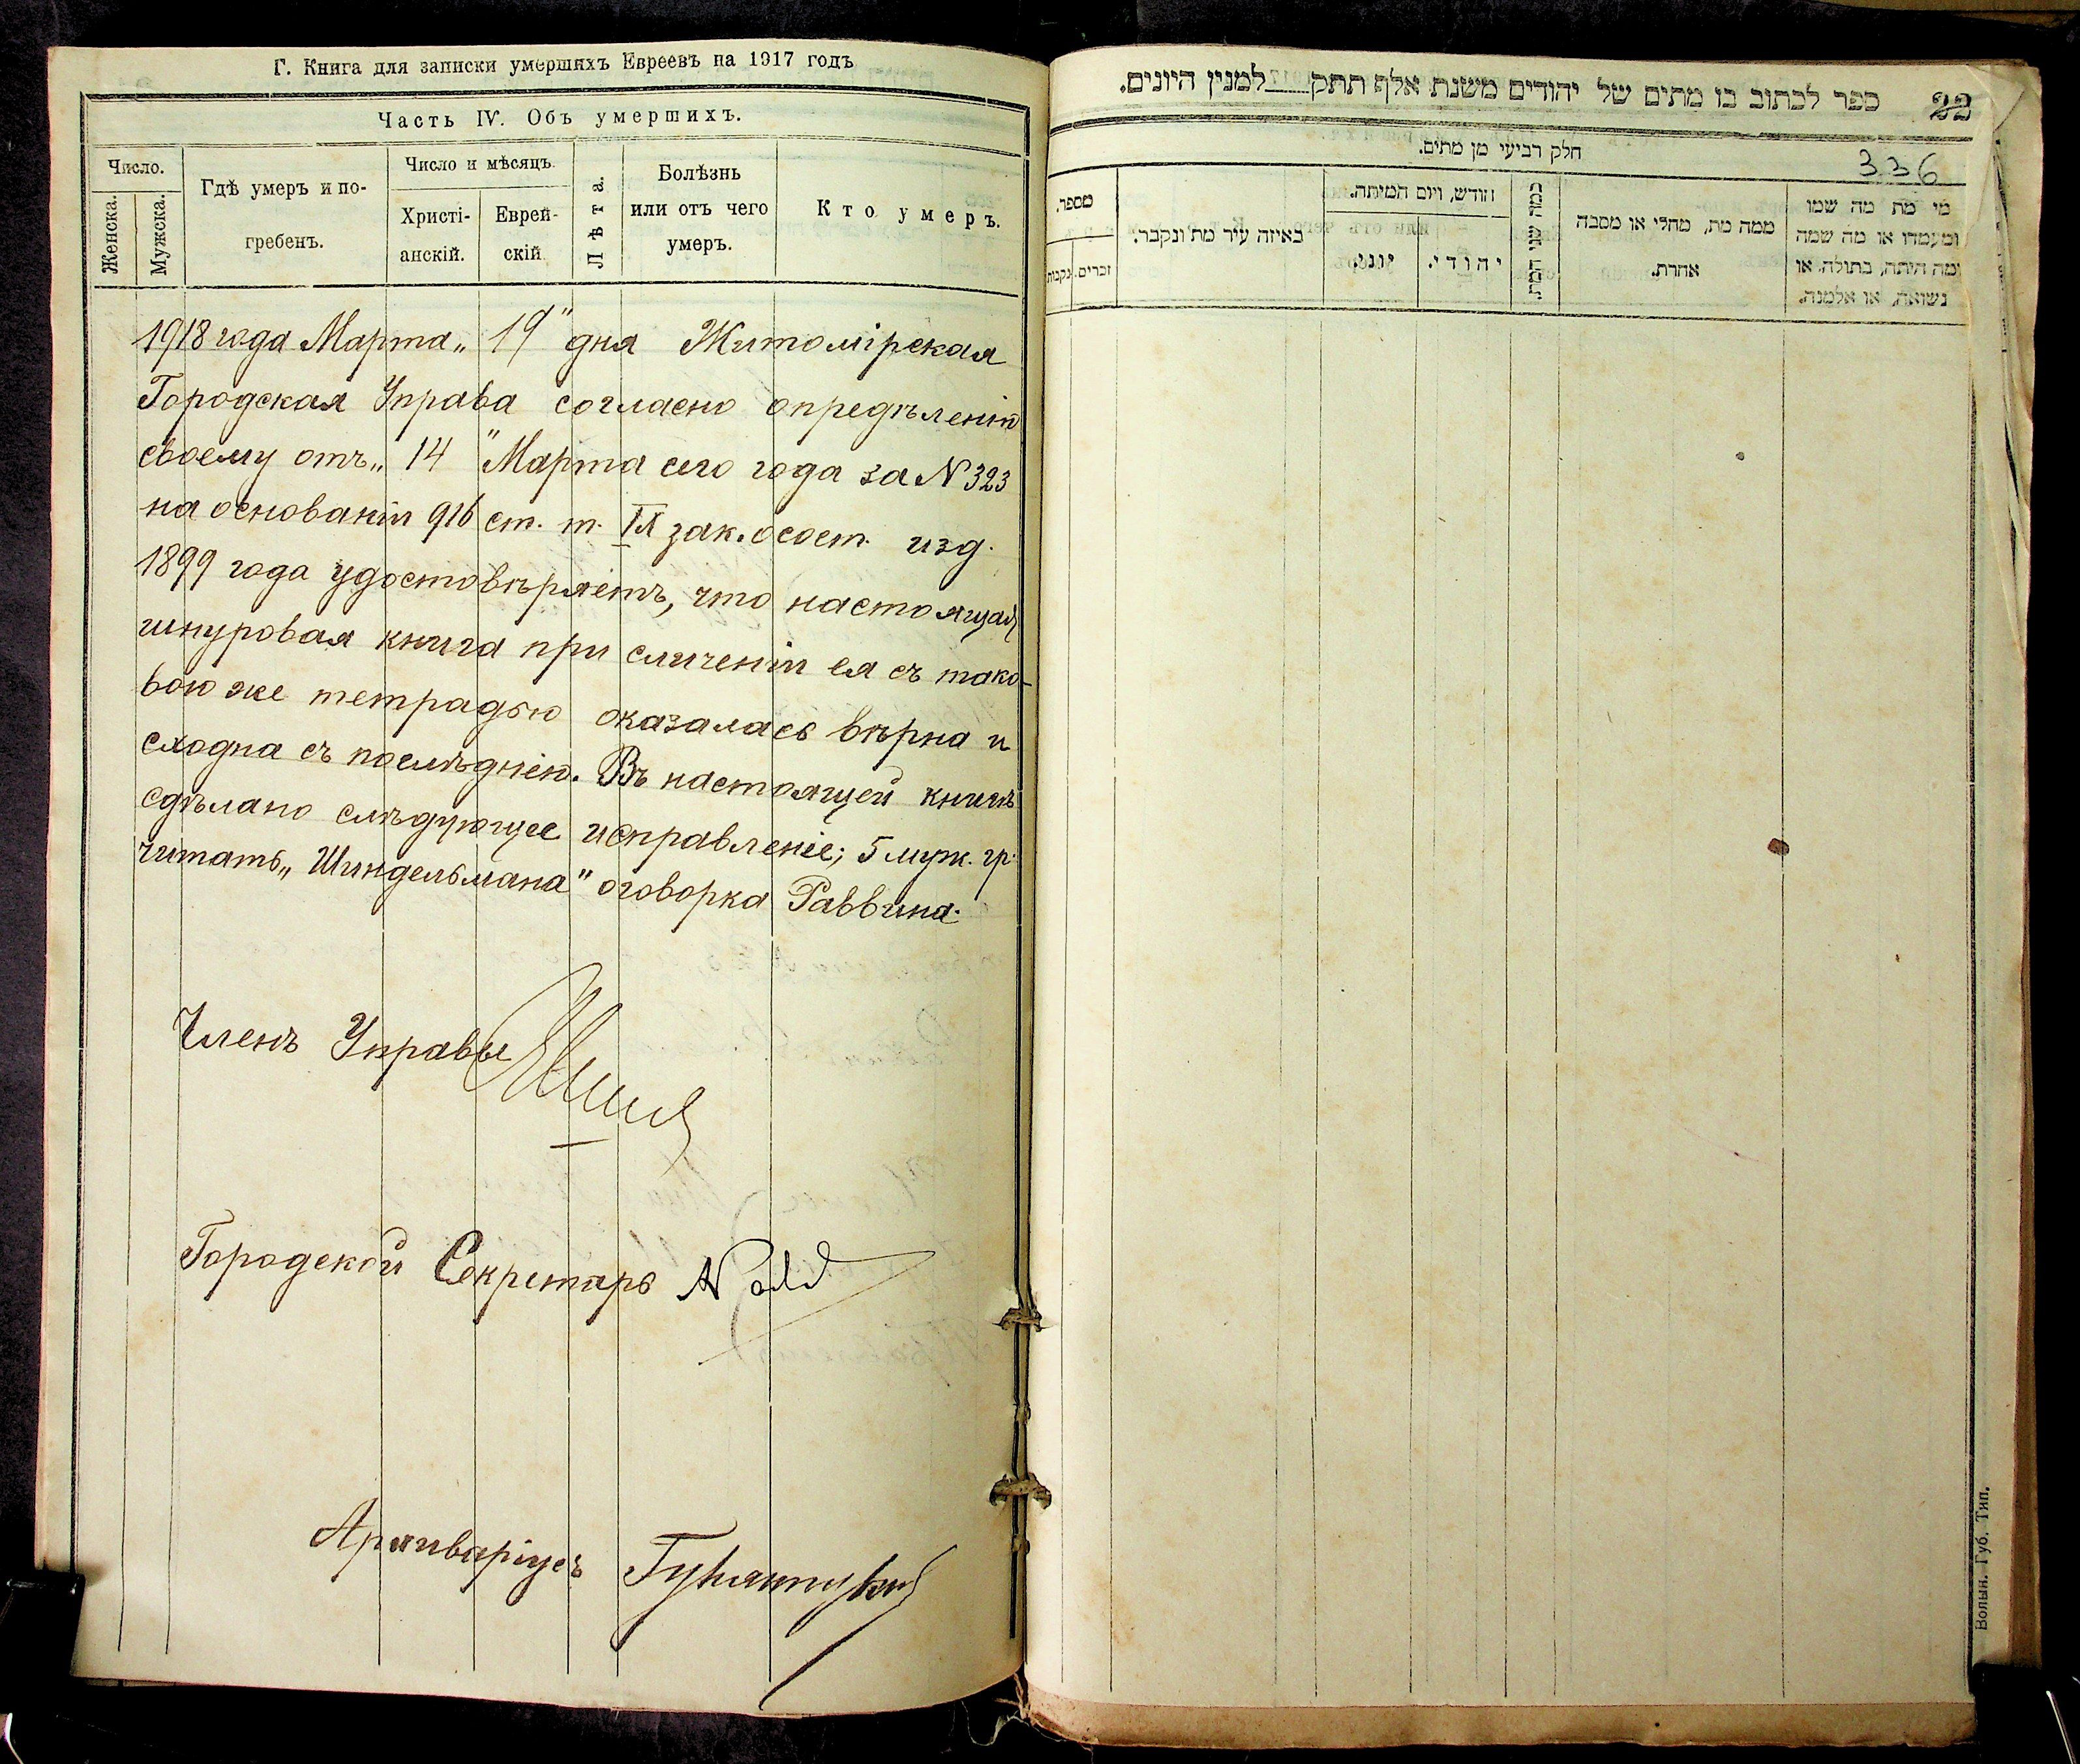 Г. Книга для записки умершихъ Евреевъ на 1917 годъ
Часть IV. Объ умершихъ.
Число.
Женска.
Мужска.
Гдѣ умеръ и по-
гребенъ.
Число и мѣсяцъ.
Христі-
анскій.
Еврей-
скій
Лѣта.
Болѣзнь
или отъ чего
умеръ.
Кто умеръ.
1918 года Марта „19" дня Житомірская
Городская Управа согласно опредѣленію
своему отъ „14" Марта сего года за N 323
на основаніи 916 ст. т. IX зак. о сост. изд.
1899 года удостовѣряетъ, что настоящая
шнуровая книга при сличеніи ея съ тако-
вою же тетрадью оказалась вѣрна и
сходна съ послѣдней. Въ настоящей книгѣ
сдѣлано слѣдующее исправленіе; 5 муж. гр.
читать „Шиндельмана" оговорка Раввина.
Членъ Управы
Городской Секретарь
Архиваріусъ
ספר לכתוב בו מתים של יהודים משנת אלף תתק למנין היונים.
22
חלק רביעי מן מתים.
336
מי מת מה שמו
ומעמדו או מה שמה
ומה היתה, בתולה, או
נשואה, או אלמנה.
ממה מת, מחלי או מסבה
אחרת.
כמה שני המת.
חודש, ויום המיתה.
יהודי.
יוני.
באיזה עיר מת ונקבר.
מספר.
זכרים.
נקבות
Волын. Губ. Тип.